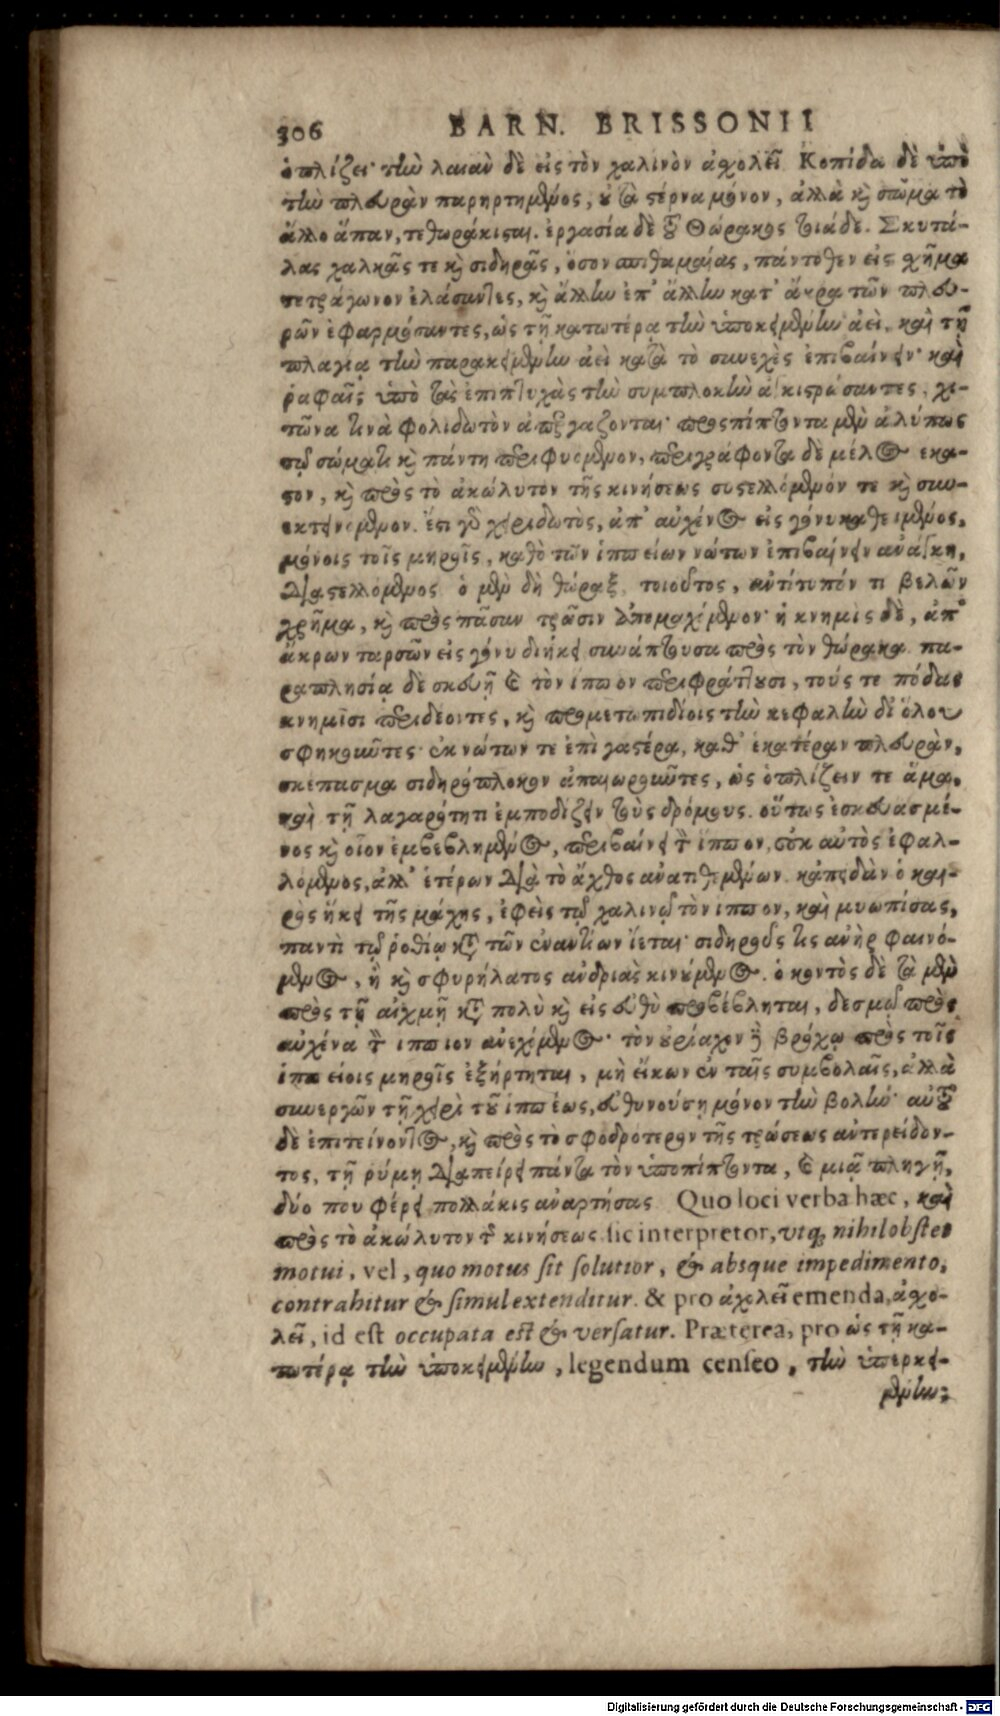 306 BARN. BRISSONII
ὁπλίζει· τὴν λαιὰν δὲ εἰς τὸν χαλινὸν ἀχολεῖ Κοπίδα δὲ ὑπὸ
τὴν πλευρὰν παρηρτημένος, οὐ τὰ στέρνα μόνον, ἀλλὰ καὶ σῶμα τὸ
ἄλλο ἅπαν, τεθωράκισται. ἐργασία δὲ τοῦ Θώρακος τοιάδε. Σκυτά-
λας χαλκᾶς τε καὶ σιδηρᾶς, ὅσον σπιθαμαίας, πάντοθεν εἰς χῆμα
τετράγωνον ἐλάσαντες, καὶ ἄλλην ἐπ' ἄλλην κατ' ἄκρα τῶν πλευ-
ρῶν ἐφαρμόσαντες, ὡς τῇ κατωτέρᾳ τὴν ὑποκειμένην ἀεὶ, καὶ τῇ
πλαγίᾳ τὴν παρακειμένην ἀεὶ κατὰ τὸ συνεχὲς ἐπιβαίνειν· καὶ
ῥαφαῖς ὑπὸ τὰς ἐπιπτυχὰς τὴν συμπλοκὴν ἀγκιστρώσαντες, χι-
τῶνα τινὰ φολιδωτὸν ἀπεργάζονται· προσπίπτοντα μὲν ἀλύπως
τῷ σώματι καὶ πάντη περιφυόμενον, περιγράφοντα δὲ μέλος ἕκα-
στον, καὶ πρὸς τὸ ἀκώλυτον τῆς κινήσεως συστελλόμενόν τε καὶ συν-
εκτεινόμενον. ἔστι γὰρ χειριδωτὸς, ἀπ' αὐχένος εἰς γόνυ καθειμένος,
μόνοις τοῖς μηροῖς, καθὸ τῶν ἱππείων νώτων ἐπιβαίνειν ἀνάγκη,
διαστελλόμενος ὁ μὲν δὴ θώραξ, τοιοῦτος, ἀντίτυπόν τι βελῶν
χρῆμα, καὶ πρὸς πᾶσαν τρῶσιν ἀπομαχόμενον· ἡ κνημὶς δὲ, ἀπ'
ἄκρων ταρσῶν εἰς γόνυ διήκει συνάπτουσα πρὸς τὸν θώρακα. πα-
ραπλησίᾳ δὲ σκευῇ καὶ τὸν ἵππον περιφράττουσι, τούς τε πόδας
κνημῖσι περιδέοντες, καὶ προμετωπιδίοις τὴν κεφαλὴν δι' ὅλου
σφηκοῦντες· ἐκ νώτων τε ἐπὶ γαστέρα, καθ' ἑκατέραν πλευρὰν,
σκέπασμα σιδηρόπλοκον ἀπαιωροῦντες, ὡς ὁπλίζειν τε ἅμα,
καὶ τῇ λαγαρότητι ἐμποδίζειν τοὺς δρόμους. οὕτως ἐσκευασμέ-
νος καὶ οἷον ἐμβεβλημένος, περιβαίνει τὸν ἵππον, οὐκ αὐτὸς ἐφαλ-
λόμενος, ἀλλ' ἑτέρων διὰ τὸ ἄχθος ἀνατιθεμένων. κἀπειδὰν ὁ και-
ρὸς ἥκει τῆς μάχης, ἐφεὶς τῷ χαλινῷ τὸν ἵππον, καὶ μυωπίσας,
παντὶ τῷ ῥοθίῳ κατὰ τῶν ἐναντίων ἵεται· σιδηροῦς τις ἀνὴρ φαινό-
μενος, ἢ καὶ σφυρήλατος ἀνδριὰς κινούμενος. ὁ κοντὸς δὲ τὰ μὲν
πρὸς τῇ αἰχμῇ κατὰ πολὺ καὶ εἰς εὐθὺ προβέβληται, δεσμῷ πρὸς
αὐχένα τὸν ἵππιον ἀνεχόμενος· τὸν οὐρίαχον δὲ βρόχῳ πρὸς τοῖς
ἱππείοις μηροῖς ἐξήρτηται, μὴ εἴκων ἐν ταῖς συμβολαῖς, ἀλλὰ
συνεργῶν τῇ χειρὶ τοῦ ἱππέως, εὐθυνούσῃ μόνον τὴν βολήν· αὐτοῦ
δὲ ἐπιτείνοντος, καὶ πρὸς τὸ σφοδρότερον τῆς τρώσεως ἀντερείδον-
τος, τῇ ῥύμῃ διαπείρει πάντα τὸν ὑποπίπτοντα, καὶ μιᾷ πληγῇ,
δύο που φέρει πολλάκις ἀναρτήσας Quo loci verba hæc, καὶ
πρὸς τὸ ἀκώλυτον τῆς κινήσεως sic interpretor, vtq; nihil obstet
motui, vel, quo motus sit solutior, & absque impedimento,
contrahitur & simul extenditur. & pro ἀχλεῖ emenda, ἀχο-
λεῖ, id est occupata est & versatur. Præterea, pro ὡς τῇ κα-
τωτέρᾳ τὴν ὑποκειμένην, legendum censeo, τὴν ὑπερκει-
μένην;
Digitalisierung gefördert durch die Deutsche Forschungsgemeinschaft - DFG